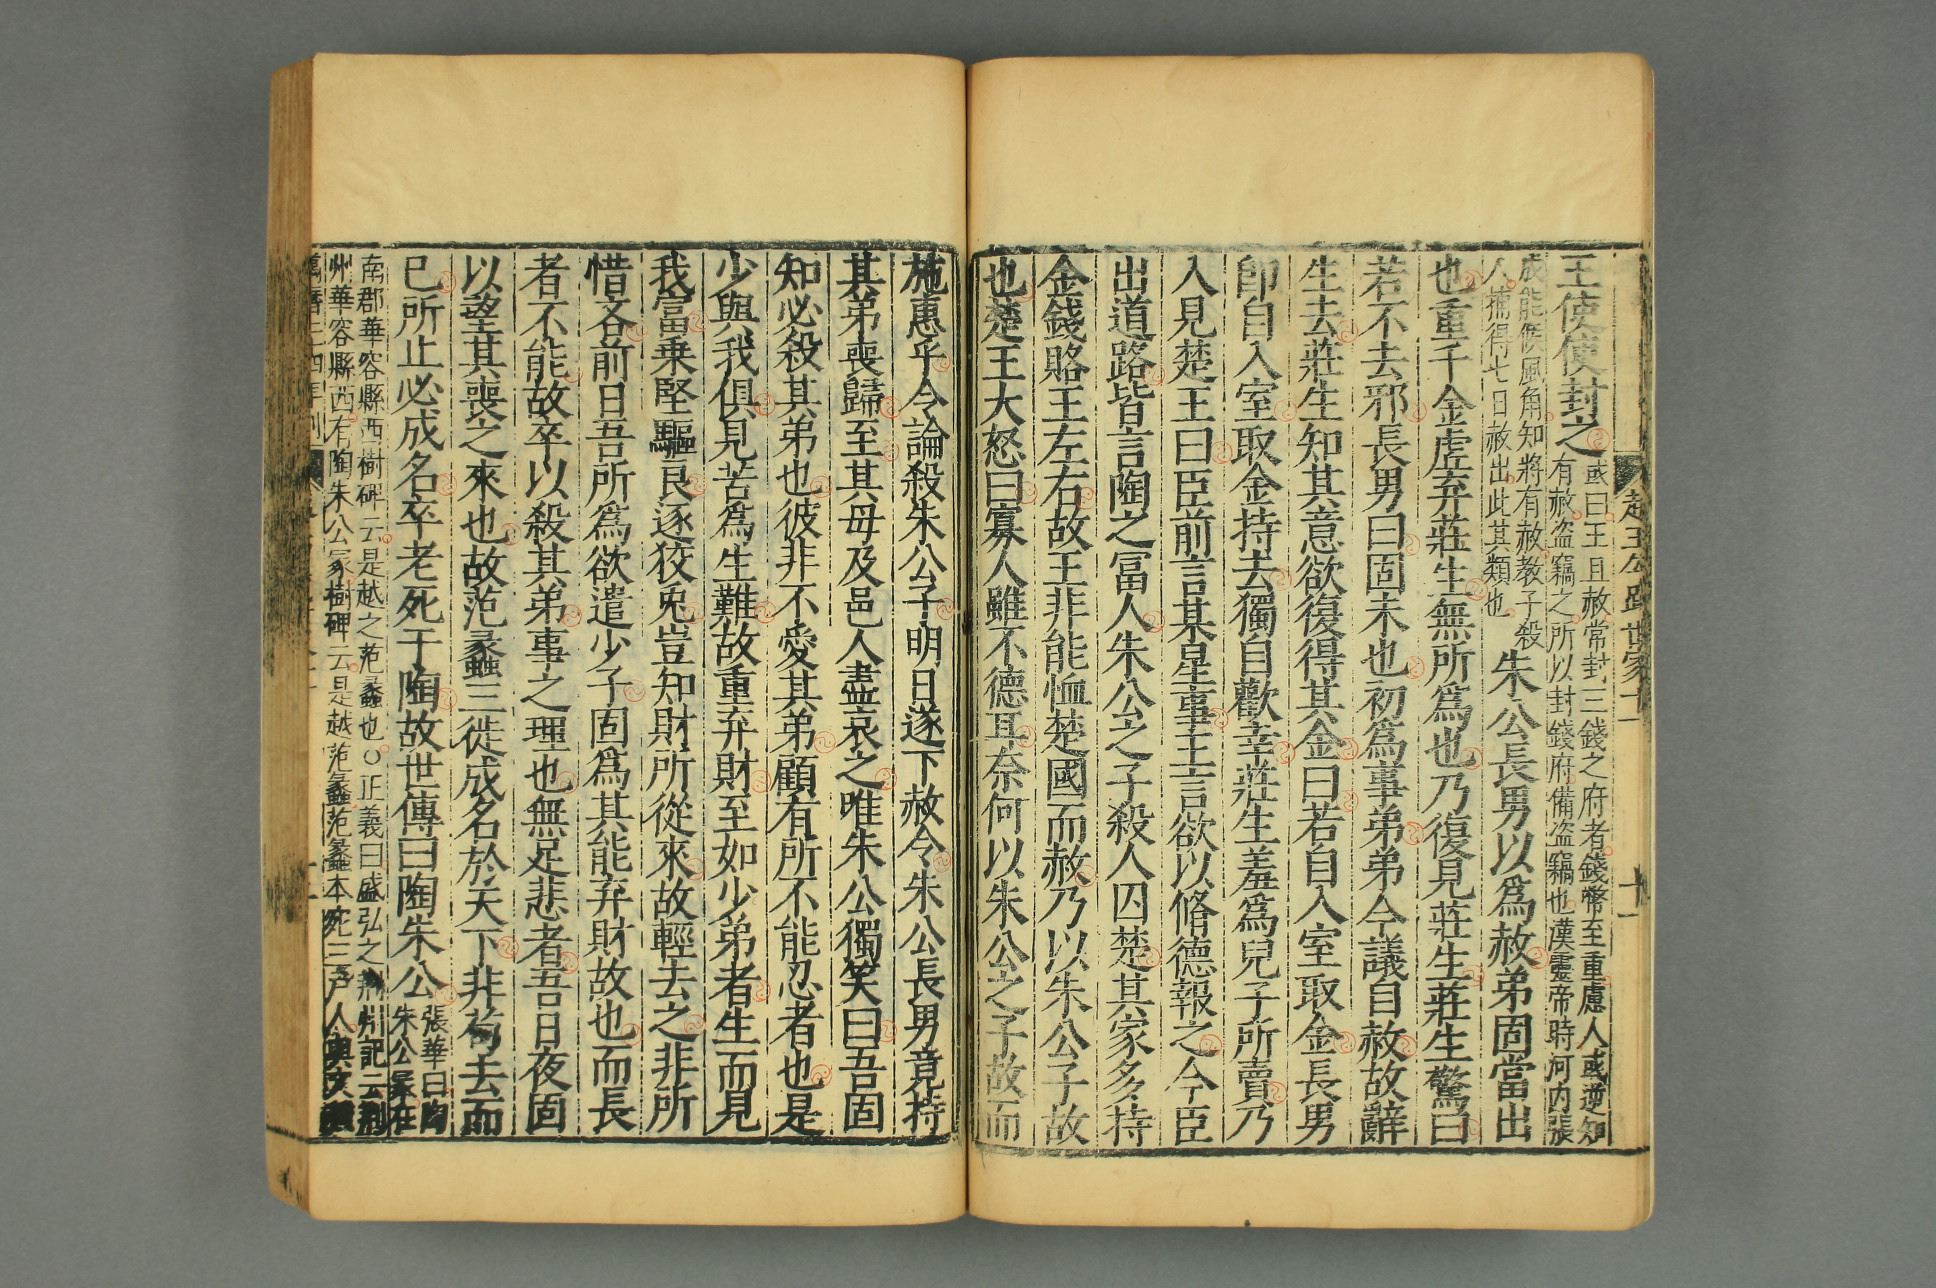 越王勾踐世家十一
十一
王使使封之或曰王且赦常封三錢之府者錢幣至重慮人或逆知
有赦盜竊之所以封錢府備盜竊也漢靈帝時河內張
成能候風角知將有赦教子殺
人捕得七日赦出此其類也朱公長男以爲赦弟固當出
也重千金虛弃莊生無所爲也乃復見莊生莊生驚曰
若不去邪長男曰固未也初爲事弟弟今議自赦故辭
生去莊生知其意欲復得其金曰若自入室取金長男
卽自入室取金持去獨自歡幸莊生羞爲兒子所賣乃
入見楚王曰臣前言某星事王言欲以脩德報之今臣
出道路皆言陶之富人朱公之子殺人囚楚其家多持
金錢賂王左右故王非能恤楚國而赦乃以朱公子故
也楚王大怒曰寡人雖不德耳奈何以朱公之子故而
施惠乎令論殺朱公子明日遂下赦令朱公長男竟持
其弟喪歸至其母及邑人盡哀之唯朱公獨笑曰吾固
知必殺其弟也彼非不愛其弟顧有所不能忍者也是
少與我俱見苦爲生難故重弃財至如少弟者生而見
我富乗堅驅良逐狡兎豈知財所從來故輕去之非所
惜吝前日吾所爲欲遣少子固爲其能弃財故也而長
者不能故卒以殺其弟事之理也無足悲者吾日夜固
以望其喪之來也故范蠡三徙成名於天下非苟去而
已所止必成名卒老死于陶故世傳曰陶朱公張華曰陶
朱公冢在
南郡華容縣西樹碑云是越之范蠡也○正義曰盛弘之荆州記云荆
州華容縣西有陶朱公冢樹碑云是越范蠡范蠡本宛三戸人與文種
萬曆二十四年刊